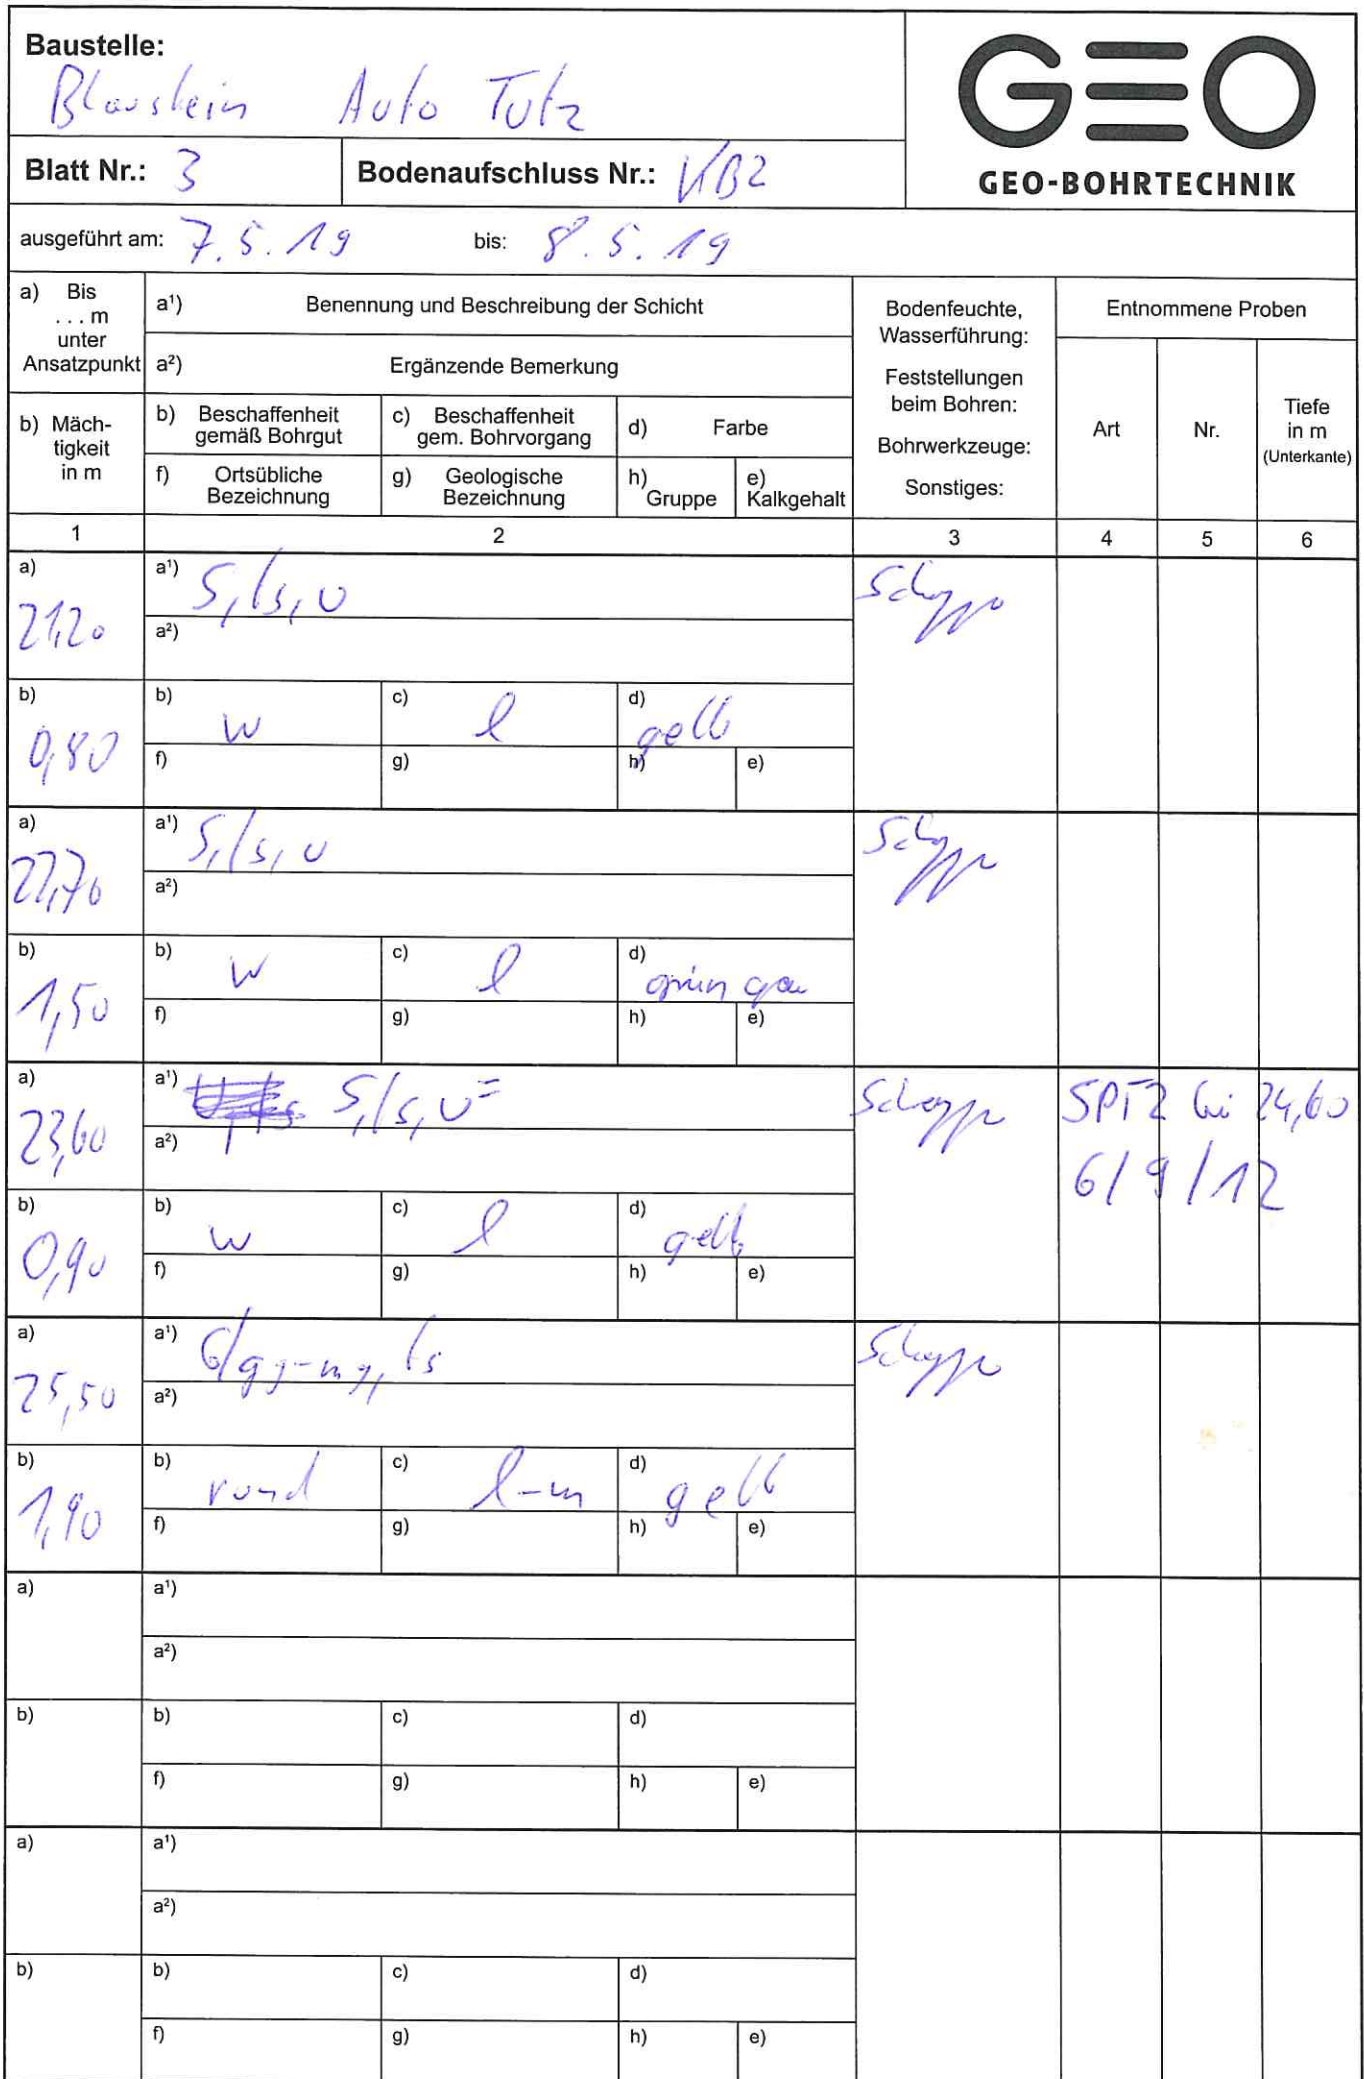 Baustelle:
Blaustein Auto Tutz
GEO
GEO-BOHRTECHNIK
Blatt Nr.: 3
Bodenaufschluss Nr.: KB2
ausgeführt am: 7.5.19 bis: 8.5.19
a) Bis
... m
unter
Ansatzpunkt
a¹) Benennung und Beschreibung der Schicht
a²) Ergänzende Bemerkung
b) Mäch-
tigkeit
in m
b) Beschaffenheit
gemäß Bohrgut
c) Beschaffenheit
gem. Bohrvorgang
d) Farbe
f) Ortsübliche
Bezeichnung
g) Geologische
Bezeichnung
h)
Gruppe
e)
Kalkgehalt
Bodenfeuchte,
Wasserführung:
Feststellungen
beim Bohren:
Bohrwerkzeuge:
Sonstiges:
Entnommene Proben
Art
Nr.
Tiefe
in m
(Unterkante)
1 2 3 4 5 6
a) 21,20
a¹) S, fs, u
Schappe
a²)
b) 0,80
b) w
c) l
d) gelb
f) g) h) e)
a) 22,70
a¹) S, fs, u
Schappe
a²)
b) 1,50
b) w
c) l
d) grün grau
f) g) h) e)
a) 23,60
a¹) S, fs, u=
Schappe
SPT2 bei 24,60
6/9/12
a²)
b) 0,90
b) w
c) l
d) gelb
f) g) h) e)
a) 25,50
a¹) G/gg-mg, fs
Schappe
a²)
b) 1,90
b) rund
c) l-m
d) gelb
f) g) h) e)
a) a¹)
a²)
b) b) c) d)
f) g) h) e)
a) a¹)
a²)
b) b) c) d)
f) g) h) e)